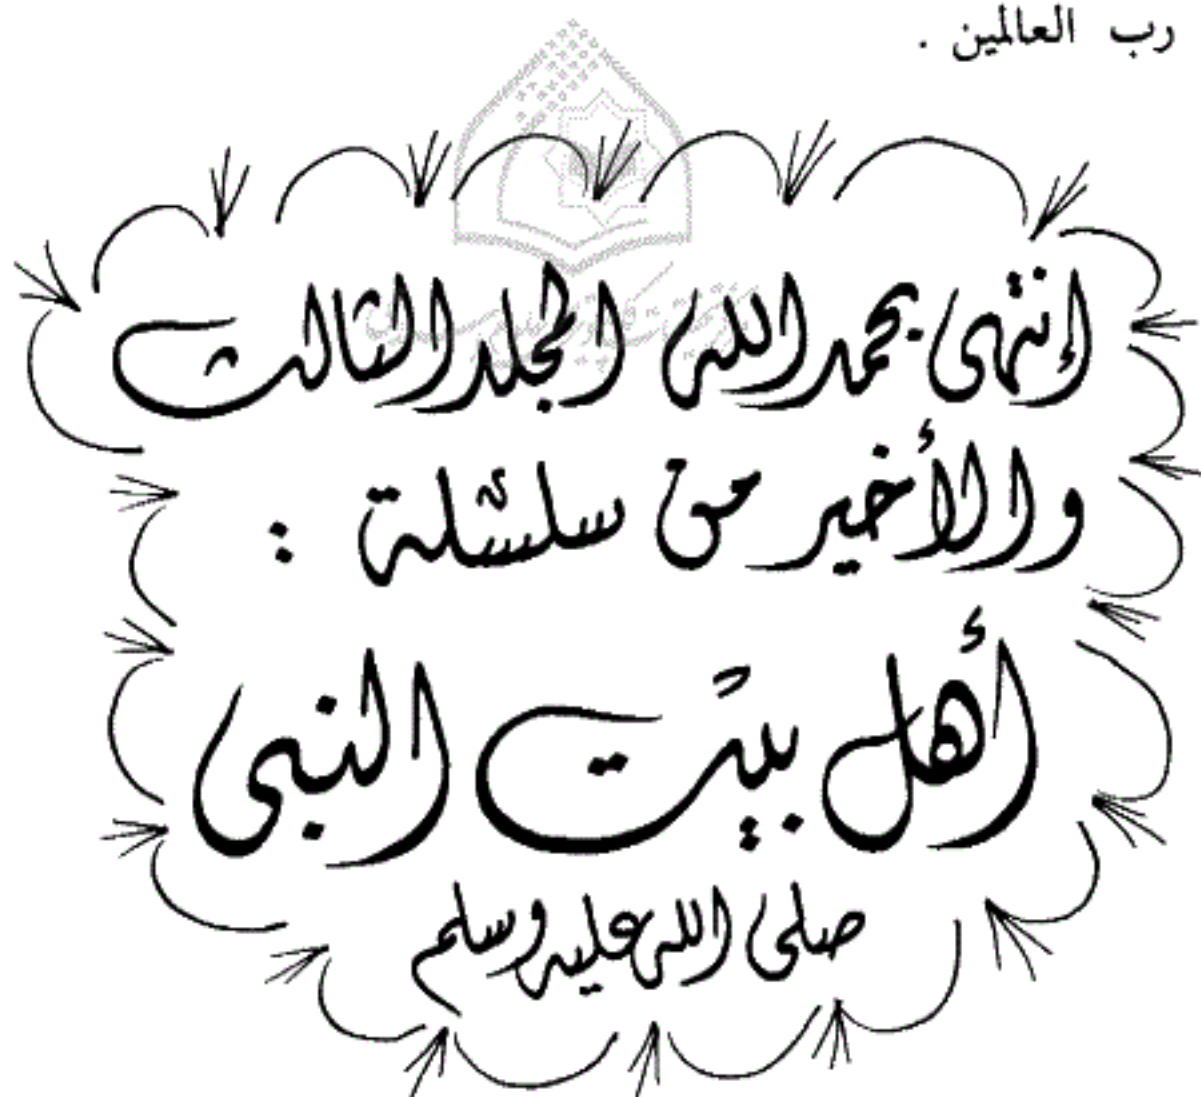 رب العالمين .
إنتهى بحمد الله المجلد الثالث
والأخير من سلسلة :
أهل بيت النبي
صلى الله عليه وسلم